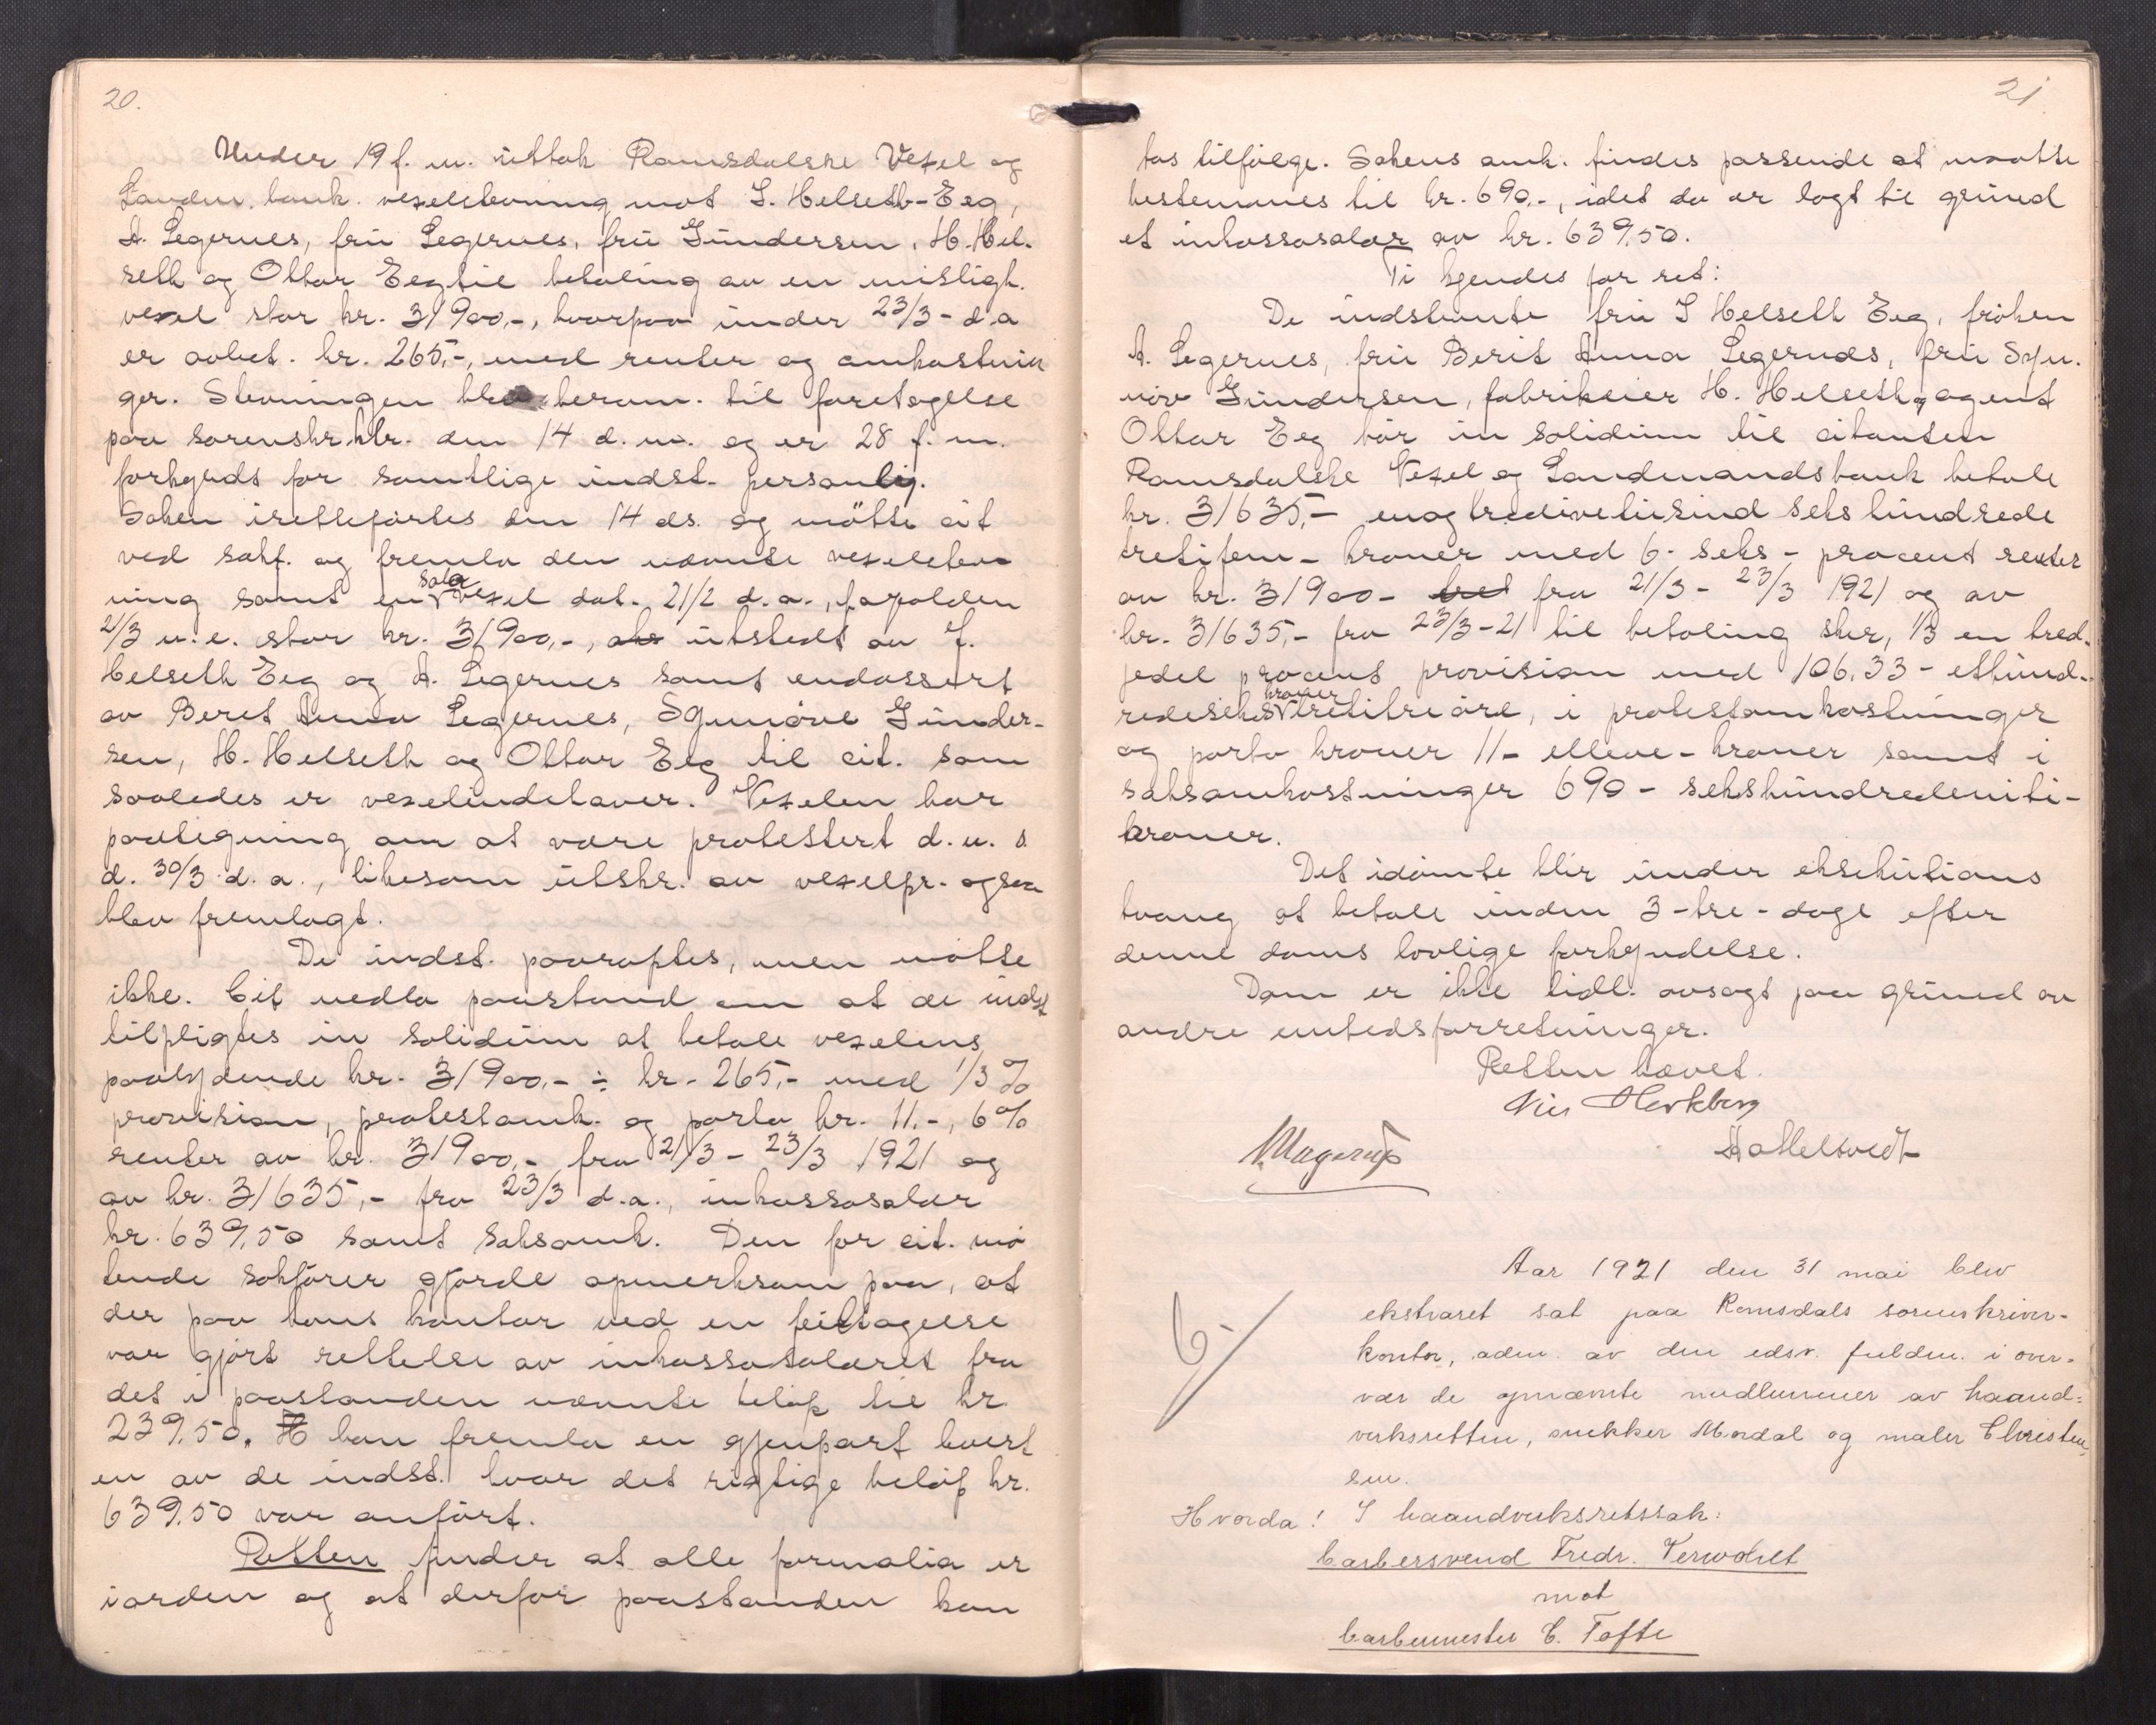 20.
Under 19 f. m. uttok Romsdalske Vexel og
Landm. bank. vexelstevning mot S. Helseth-Eeg,
A. Legernes, fru Legernes, fru Gundersen, H. Hel-
seth og Ottar Eeg til betaling av en misligh.
vexel stor kr. 31900,-, hvorpaa under 23/3 - d.a
er avbet. kr. 265,-, med renter og omkostnin
ger. Stevningen blev beram. til foretagelse
paa sorenskr.ktr. den 14 d. m. og er 28 f. m.
forkyndt for samtlige indst. personlig.
Saken iretteførtes den 14 ds. og møtte cit
ved sakf. og fremla den nævnte vexelstev
ning samt en sola vexel dat. 21/2 d.a., forfalden
21/3 n.e. stor kr. 31900,-, utstedt av S.
Helseth Eeg og A. Legernes samt endossert
av Beret Anna Legernes, Synnøve Gunder-
sen, H. Helseth og Ottar Eeg til cit. som
saaledes er vexelindehaver. Vexelen har
paategning om at være protestert d. u. s.
d. 30/3 d. a., likesom utskr. av vexelpr. ogsaa
blev fremlagt.
De indst. paaroptes, men møtte
ikke. Cit nedla paastand om at de indst
tilpligtes in solidum at betale vexelens
paalydende kr. 31900,- ÷ kr. 265,- med 1/3 %
provision, protestomk. og porto kr. 11.-, 6%
renter av kr. 31900,- fra 21/3 - 23/3 1921 og
av kr. 31635,- fra 23/3 d.a., inkassosalær
kr. 639,50 samt saksomk. Den for cit. mø
tende sakfører gjorde opmerksom paa, at
der paa hans kontor ved en feiltagelse
var gjort rettelse av inkassosalæret fra
det i paastanden nævnte beløp til kr.
239,50. H han fremla en gjenpart hvert
en av de indst. hvor det rigtige beløp kr.
639,50 var anført.
Retten finder at alle formalia er
iorden og at derfor paastanden kan
21
tas tilfølge. Sakens omk. findes passende at maatte
bestemmes til kr. 690.-, idet da er lagt til grund
et inkassosalær av kr. 639,50.
Ti kjendes for ret:
De indstevnte fru S Helseth Eeg, frøken
A. Legernes, fru Berit Anna Legernes, fru Syn-
nøve Gundersen, fabrikeier H. Helseth og agent
Ottar Eeg bør in solidum til citanten
Romsdalske Vexel og Landmandsbank betale
kr. 31635,- enogtredivetusind seks hundrede
tretifem - kroner med 6 - seks - procent renter
av kr. 31900 - fra 21/3 - 23/3 1921 og av
kr. 31635,- fra 23/3-21 til betaling sker, 1/3 en tred-
jedel procent provision med 106,33 - ethund-
redeseks kroner tretitre øre, i protestomkostninger
og porto kroner 11 - elleve - kroner samt i
saksomkostninger 690 - sekshundredeniti-
kroner.
Det idømte blir under eksekutions
tvang at betale inden 3 - tre - dage efter
denne doms lovlige forkyndelse.
Dom er ikke tidl. avsagt paa grund av
andre embedsforretninger.
Retten hævet.
6-/
Aar 1921 den 31 mai blev
ekstraret sat paa Romsdals sorenskriver-
kontor, adm. av den edsv. fuldm. i over-
vær de opnævnte medlemmer av haand-
verksretten, snekker Mordal og maler Christen
sen.
Hvorda! I haandverksretssak:
barbersvend Fredr. Verwohlt
mot
barbermester C. Tofte